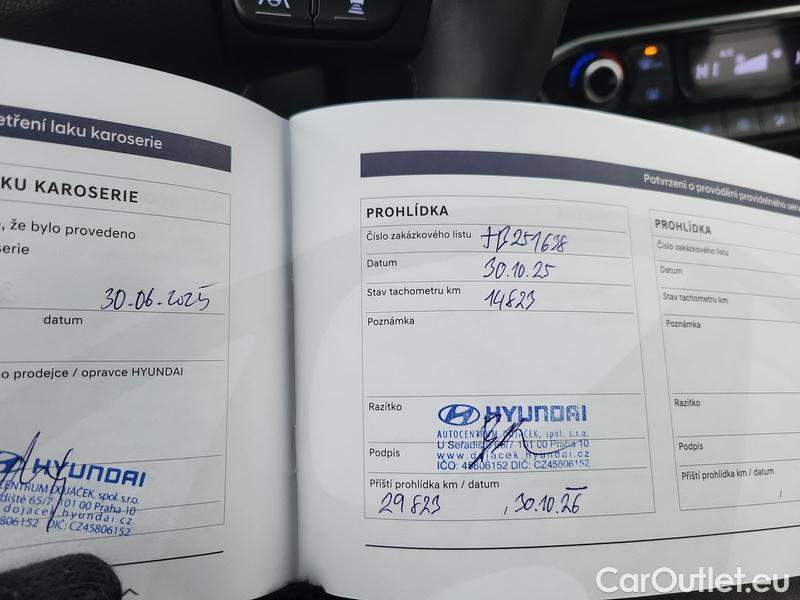 etření laku karoserie
KU KAROSERIE
, že bylo provedeno
serie
30.06.2025
datum
o prodejce / opravce HYUNDAI
HYUNDAI
CENTRUM DOJÁČEK, spol. s.r.o.
diště 65/7, 101 00 Praha 10
dojacek.hyundai.cz
5806152 DIČ: CZ45806152
Potvrzení o provádění pravidelného serv
PROHLÍDKA
Číslo zakázkového listu
Datum 30.10.25
Stav tachometru km 14823
Poznámka
Razítko
HYUNDAI
AUTOCENTRUM DOJÁČEK, spol. s.r.o.
U Seřadiště 65/7 101 00 Praha 10
www.dojacek.hyundai.cz
IČO: 45806152 DIČ: CZ45806152
Podpis
Příští prohlídka km / datum
29823 , 30.10.26
PROHLÍDKA
Číslo zakázkového listu
Datum
Stav tachometru km
Poznámka
Razítko
Podpis
Příští prohlídka km / datum
/
HI
CarOutlet.eu